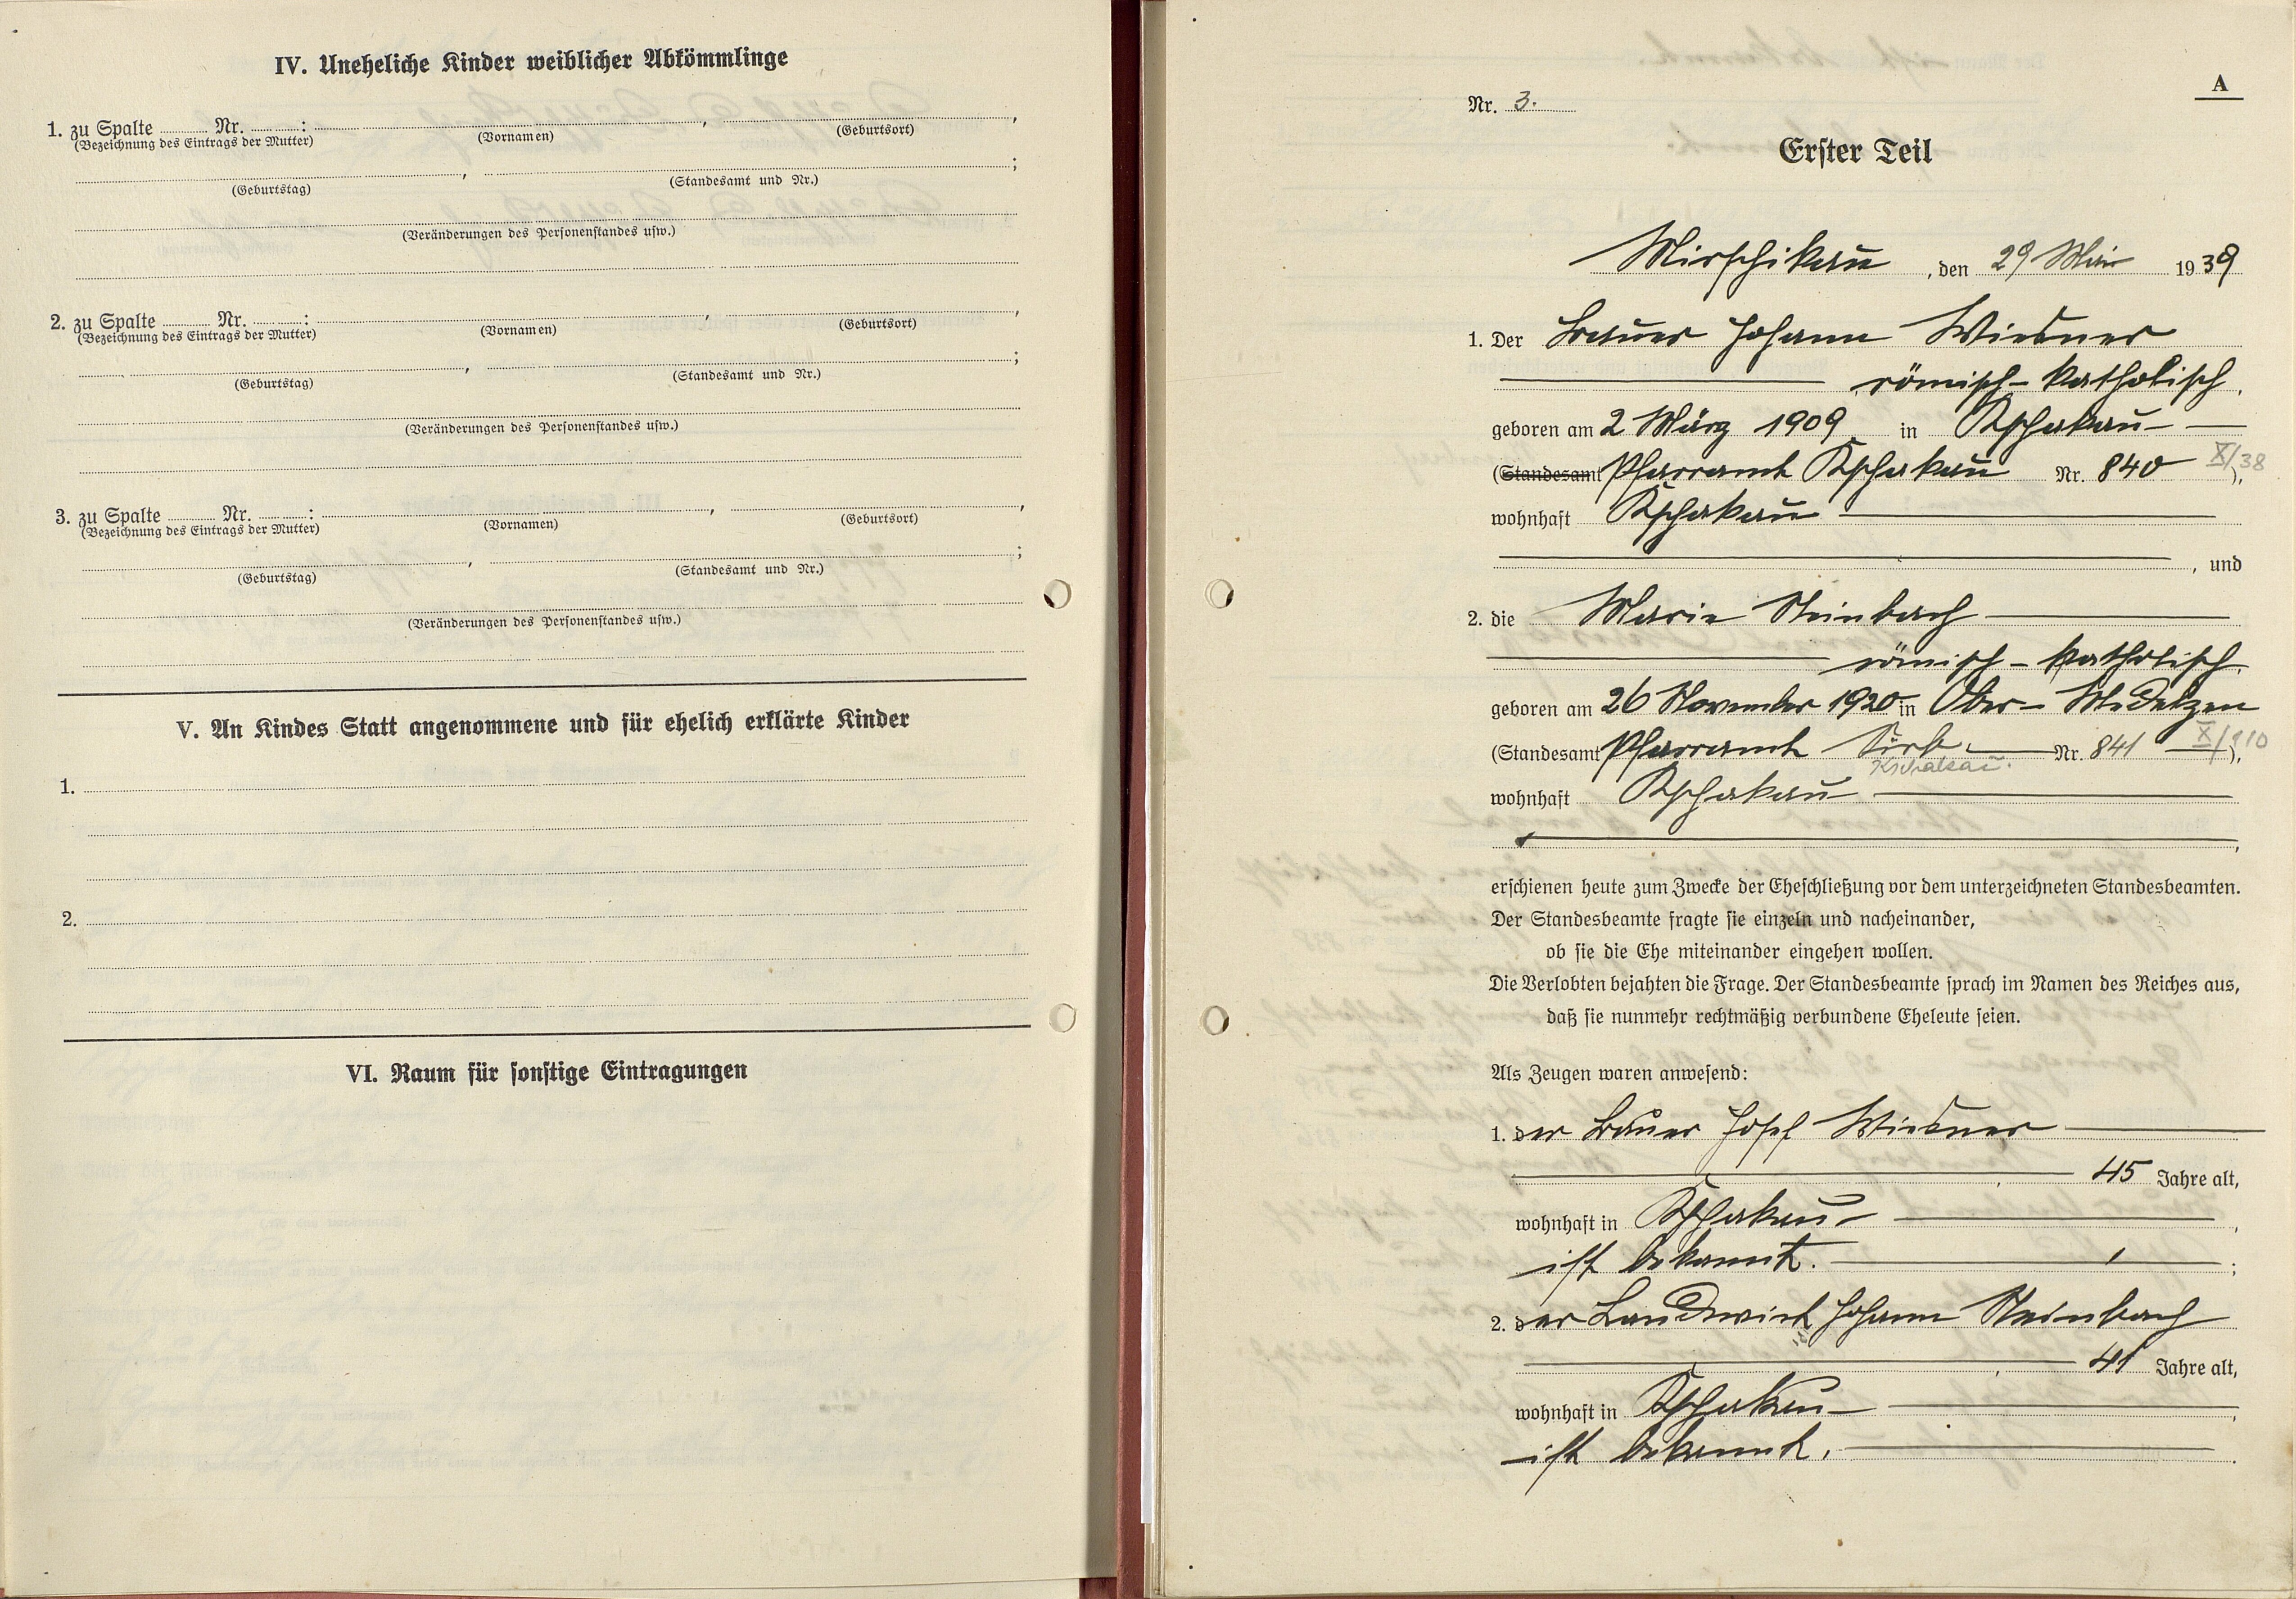 IV. Uneheliche Kinder weiblicher Abkömmlinge
1. zu Spalte ........ Nr. ........:
,
,
(Bezeichnung des Eintrags der Mutter) (Vornamen) (Geburtsort)
, ;
(Geburtstag) (Standesamt und Nr.)
(Veränderungen des Personenstandes usw.)
2. zu Spalte ........ Nr. ........:
,
,
(Bezeichnung des Eintrags der Mutter) (Vornamen) (Geburtsort)
, ;
(Geburtstag) (Standesamt und Nr.)
(Veränderungen des Personenstandes usw.)
3. zu Spalte ........ Nr. ........:
,
,
(Bezeichnung des Eintrags der Mutter) (Vornamen) (Geburtsort)
, ;
(Geburtstag) (Standesamt und Nr.)
(Veränderungen des Personenstandes usw.)
V. An Kindes Statt angenommene und für ehelich erklärte Kinder
1.
2.
VI. Raum für sonstige Eintragungen
A
Nr. 3.
Erster Teil
Mirschikau, den 29 Mai 1939
1. Der Bauer Johann Wiesner
römisch-katholisch,
geboren am 2 März 1909 in Kschakau
(Standesamt Pfarramt Kschakau Nr. 840 X/38),
wohnhaft Kschakau
, und
2. die Marie Steinbach
römisch-katholisch,
geboren am 26 November 1920 in Ober-
(Standesamt Pfarramt Nr. 841 X/910),
Kschakau.
wohnhaft Kschakau
,
erschienen heute zum Zwecke der Eheschließung vor dem unterzeichneten Standesbeamten.
Der Standesbeamte fragte sie einzeln und nacheinander,
ob sie die Ehe miteinander eingehen wollen.
Die Verlobten bejahten die Frage. Der Standesbeamte sprach im Namen des Reiches aus,
daß sie nunmehr rechtmäßig verbundene Eheleute seien.
Als Zeugen waren anwesend:
1. der Bauer Josef Wiesner
, 45 Jahre alt,
wohnhaft in Kschakau,
ist bekannt. ;
2. der Landwirt Johann Steinbach
, 41 Jahre alt,
wohnhaft in Kschakau,
ist bekannt.